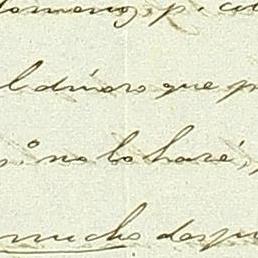 l dinero que p
p.º no lo haré,
mucho despu